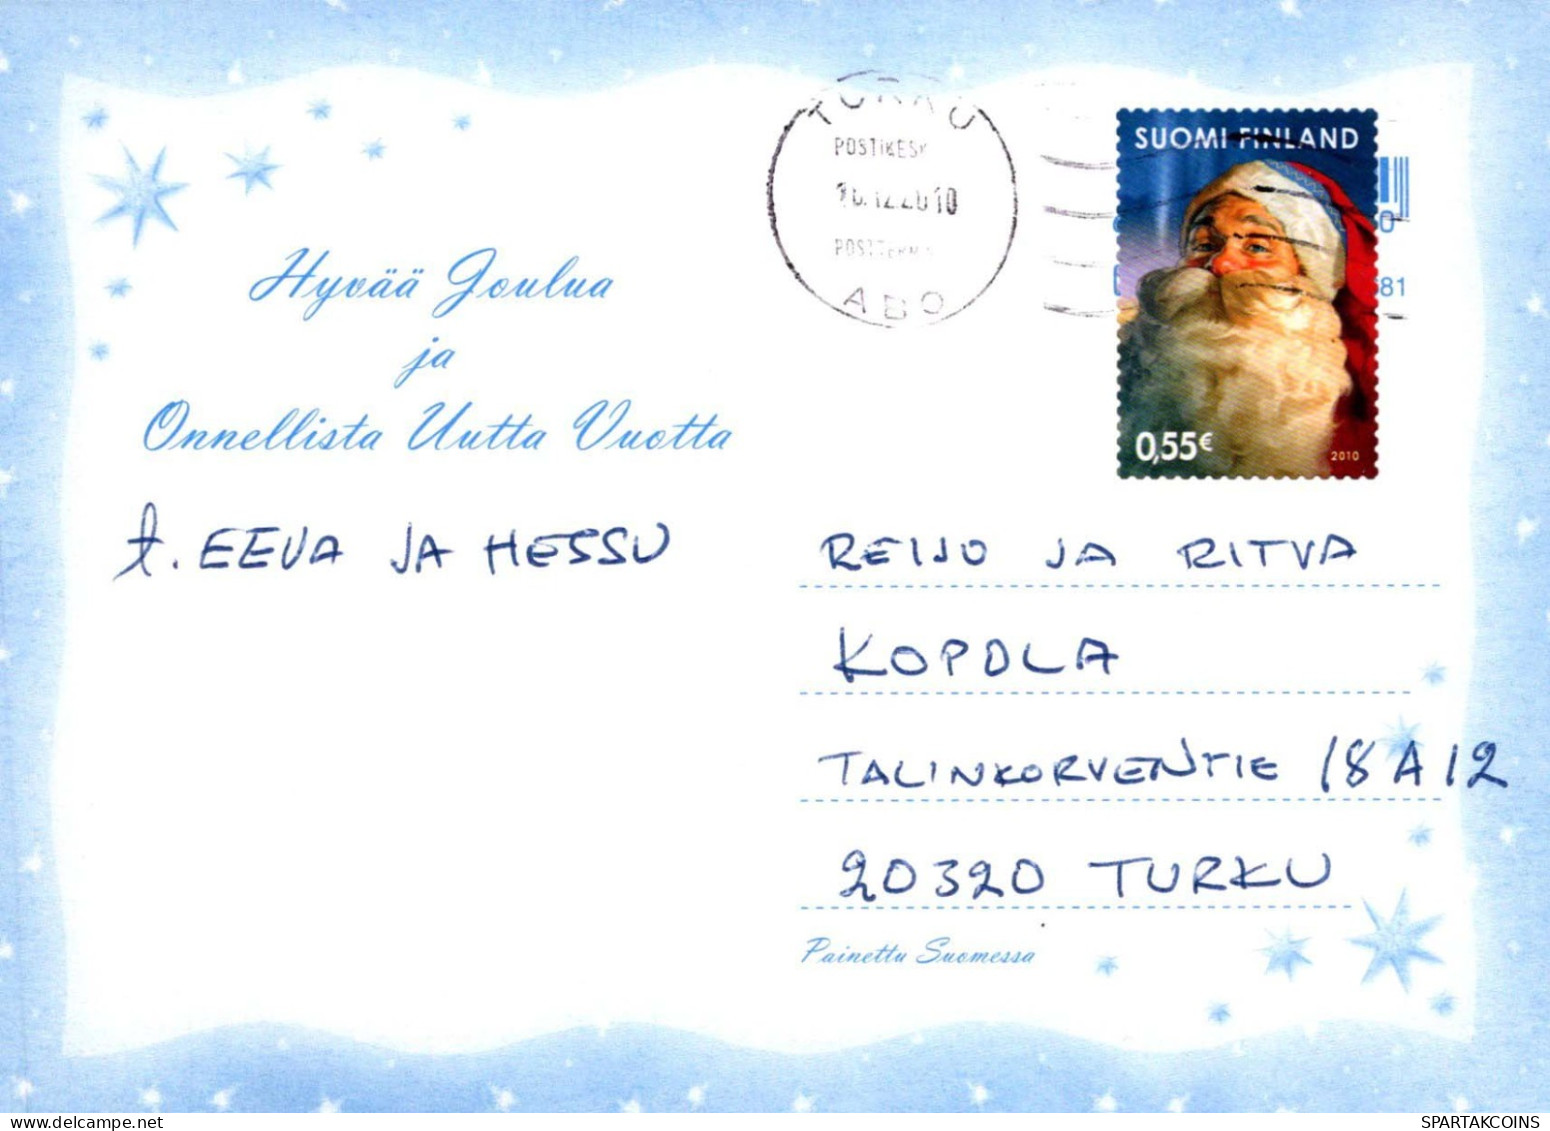 TURKU
POSTIKESK
16.12.2010
ABO
SUOMI FINLAND
0,55€
2010
0
681
Hyvää Joulua
ja
Onnellista Uutta Vuotta
t. EEVA JA HESSU
REIJO JA RITVA
KOPOLA
TALINKORVENTIE 18 A 12
20320 TURKU
Painettu Suomessa
SPARTAKCOINS